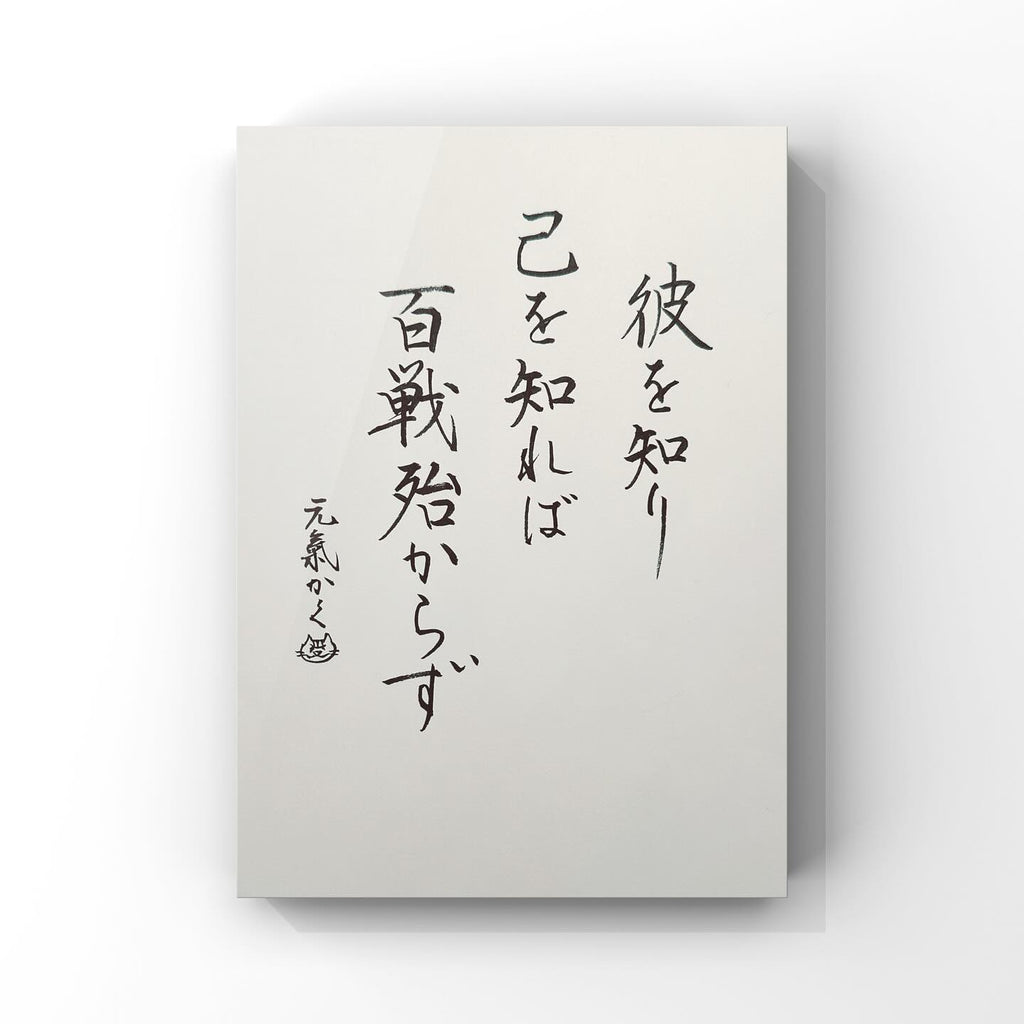 彼を知り
己を知れば
百戦殆からず
元氣かく
愛